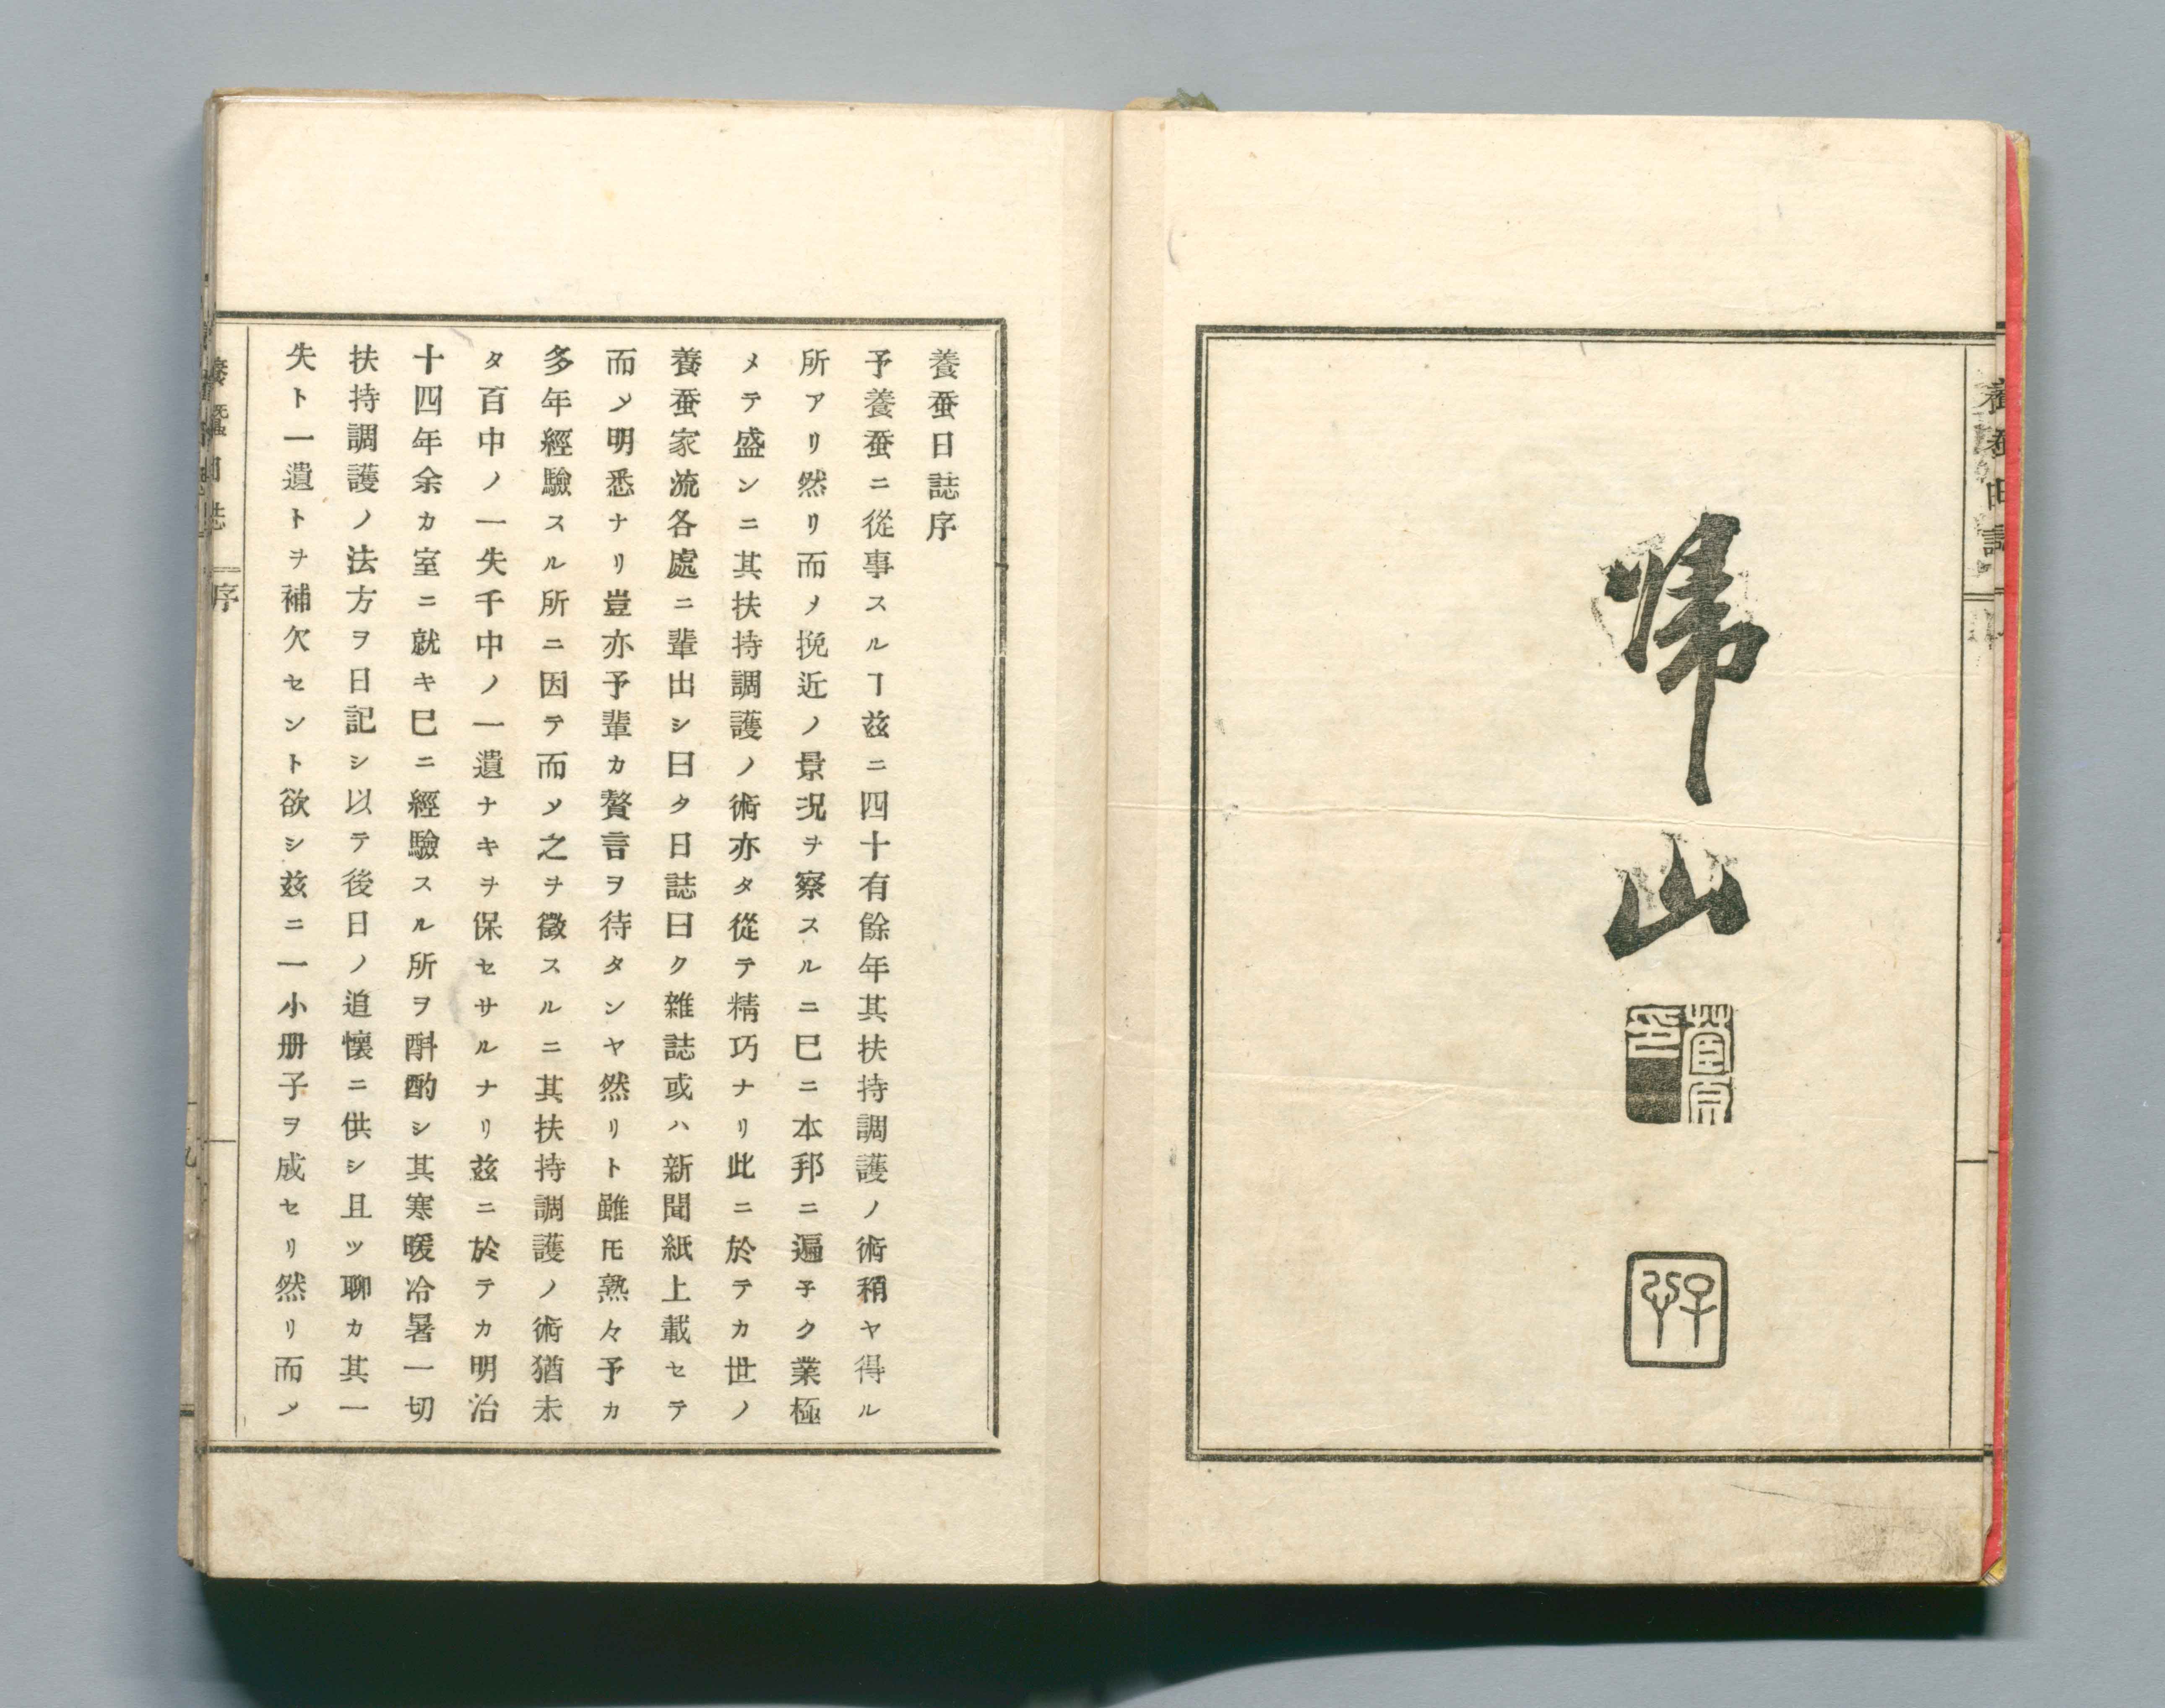 帰山
養蚕日誌序
予養蚕ニ從事スルヿ玆ニ四十有餘年其扶持調護ノ術稍ヤ得ル
所アリ然リ而ノ挽近ノ景況ヲ察スルニ巳ニ本邦ニ遍子ク業極
メテ盛ンニ其扶持調護ノ術亦タ從テ精巧ナリ此ニ於テカ世ノ
養蚕家流各處ニ輩出シ曰タ日誌曰ク雜誌或ハ新聞紙上載セテ
而ノ明悉ナリ豈亦予輩カ贅言ヲ待タンヤ然リト雖𪜈熟々予カ
多年經驗スル所ニ因テ而ノ之ヲ徵スルニ其扶持調護ノ術猶未
タ百中ノ一失千中ノ一遺ナキヲ保セサルナリ玆ニ於テカ明治
十四年余カ室ニ就キ巳ニ經驗スル所ヲ斟酌シ其寒暖冷暑一切
扶持調護ノ法方ヲ日記シ以テ後日ノ追懷ニ供シ且ツ聊カ其一
失ト一遺トヲ補欠セント欲シ玆ニ一小册子ヲ成セリ然リ而ノ
養蠶日誌 序